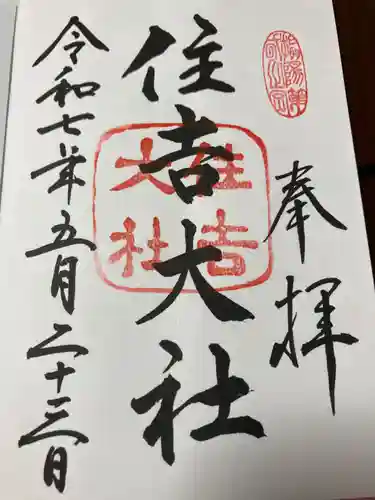 奉拝
住吉大社
住吉
大社
令和七年五月二十三日